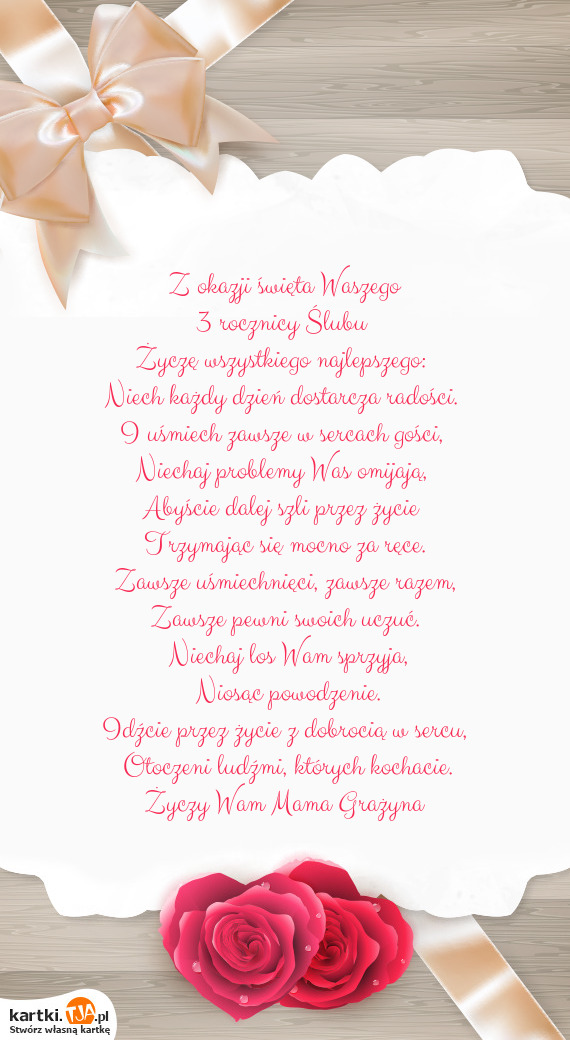 Z okazji święta Waszego
3 rocznicy Ślubu
Życzę wszystkiego najlepszego:
Niech każdy dzień dostarcza radości.
I uśmiech zawsze w sercach gości,
Niechaj problemy Was omijają,
Abyście dalej szli przez życie
Trzymając się mocno za ręce.
Zawsze uśmiechnięci, zawsze razem,
Zawsze pewni swoich uczuć.
Niechaj los Wam sprzyja,
Niosąc powodzenie.
Idźcie przez życie z dobrocią w sercu,
Otoczeni ludźmi, których kochacie.
Życzy Wam Mama Grażyna
kartki.TJA.pl
Stwórz własną kartkę